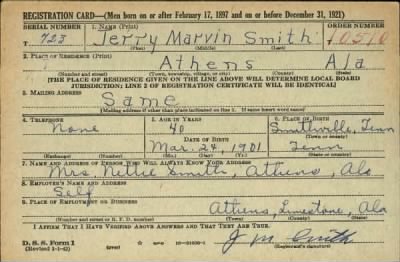 REGISTRATION CARD—(Men born on or after February 17, 1897 and on or before December 31, 1921)
SERIAL NUMBER 1. NAME (Print) ORDER NUMBER
T 723 Jerry Marvin Smith T 10510
(First) (Middle) (Last)
2. PLACE OF RESIDENCE (Print)
Athens Ala
(Number and street) (Town, township, village, or city) (County) (State)
[THE PLACE OF RESIDENCE GIVEN ON THE LINE ABOVE WILL DETERMINE LOCAL BOARD
JURISDICTION; LINE 2 OF REGISTRATION CERTIFICATE WILL BE IDENTICAL]
3. MAILING ADDRESS
Same
[Mailing address if other than place indicated on line 2. If same insert word same]
4. TELEPHONE 5. AGE IN YEARS 6. PLACE OF BIRTH
None 40 Smithville, Tenn
DATE OF BIRTH (Town or county)
Mar. 24, 1901 Tenn
(Exchange) (Number) (Mo.) (Day) (Yr.) (State or country)
7. NAME AND ADDRESS OF PERSON WHO WILL ALWAYS KNOW YOUR ADDRESS
Mrs. Nettie Smith, Athens, Ala
8. EMPLOYER'S NAME AND ADDRESS
Self
9. PLACE OF EMPLOYMENT OR BUSINESS
Athens, Limestone, Ala
(Number and street or R. F. D. number) (Town) (County) (State)
I AFFIRM THAT I HAVE VERIFIED ABOVE ANSWERS AND THAT THEY ARE TRUE.
D. S. S. Form 1 J. M. Smith
(Revised 1-1-42) (over) (Registrant's signature)